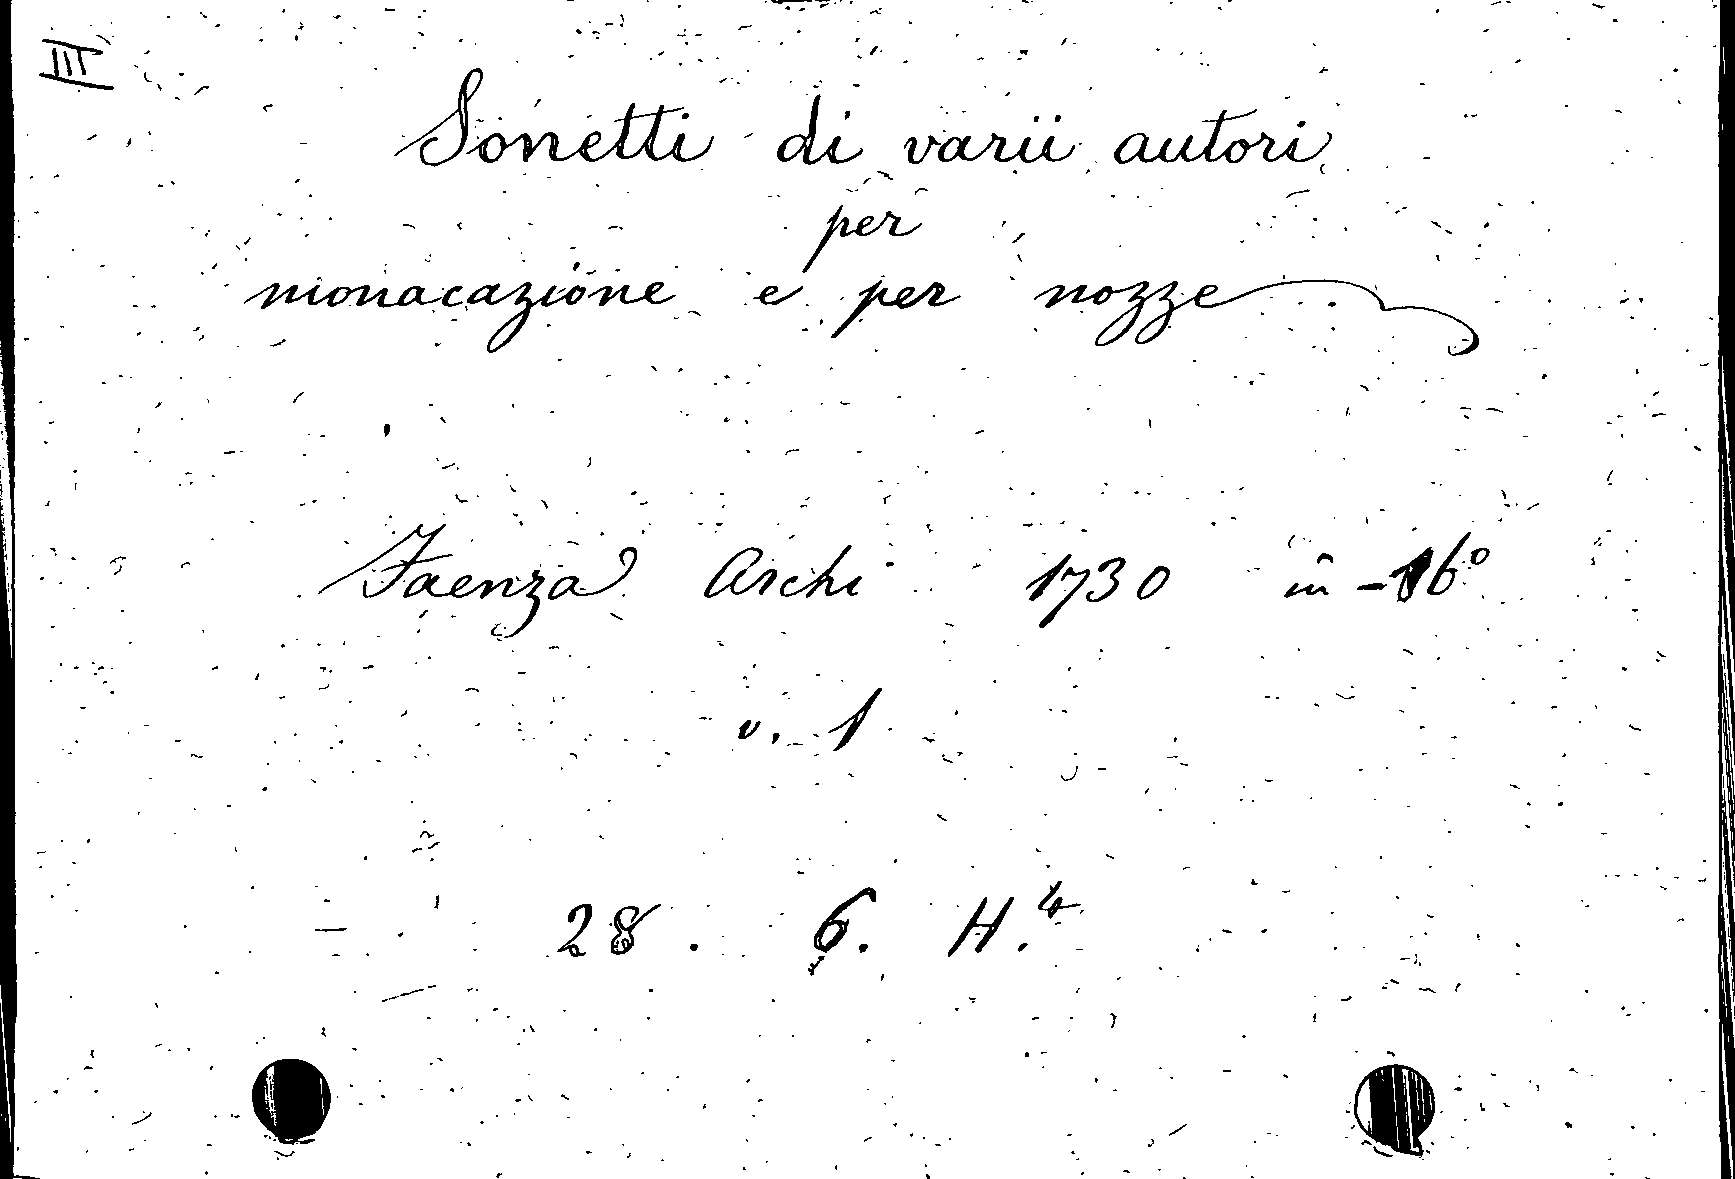 III
Sonetti di varii autori
per
monacazione e per nozze
Faenza Archi 1730 in-16°
v. 1
28. 6. H.4